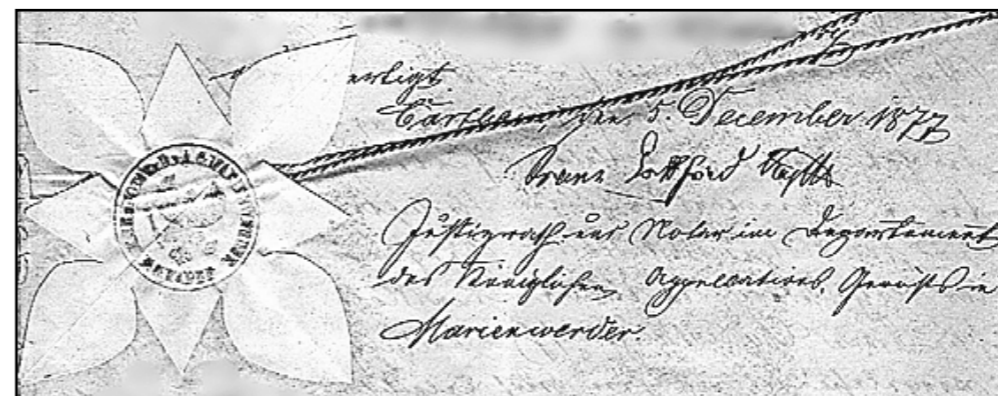 ertigt
Carthaus, den 5. December 1877
Franz Gottfried
Justizrath und Notar im Departement
des Königlichen Appellations, Gerichts in
Marienwerder.